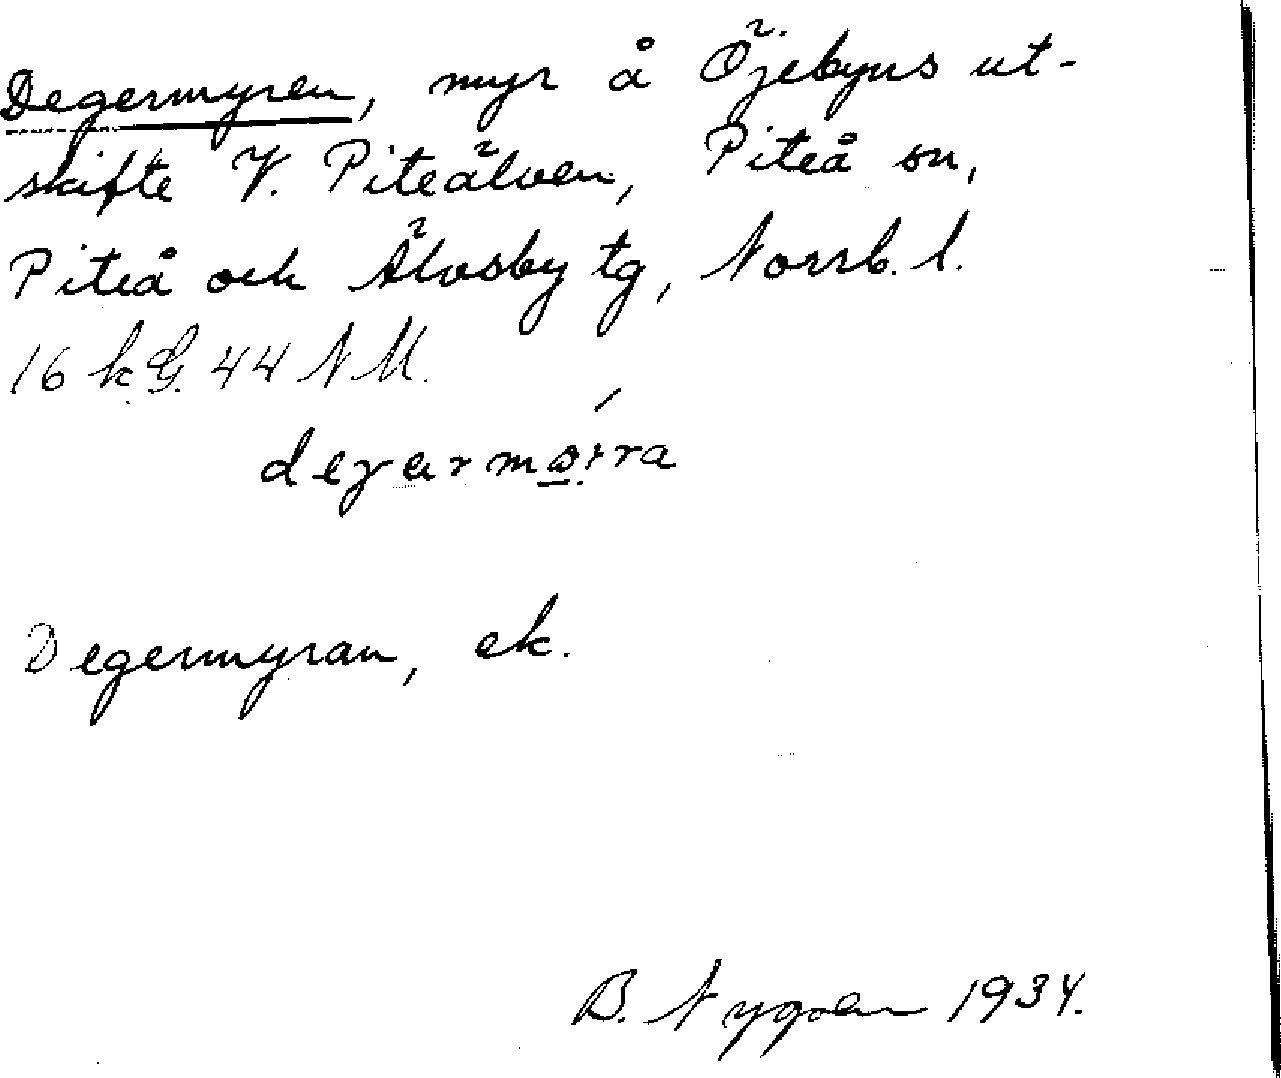 Degermyren, myr å Öjebyns ut-
skifte V. Piteälven, Piteå sn,
Piteå och Älvsby tg, Norrb. l.
16 k G. 44 N M.
Degermyran, ek.
B. Nygren 1934.